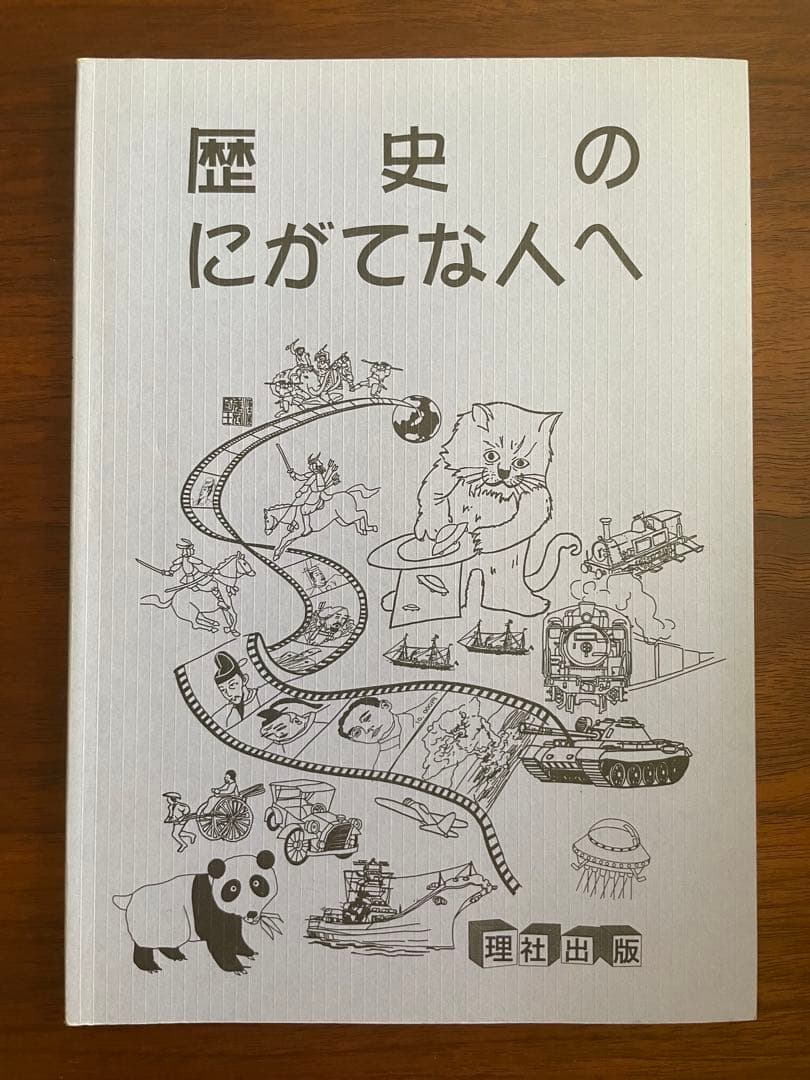 歴史の
にがてな人へ
理社出版